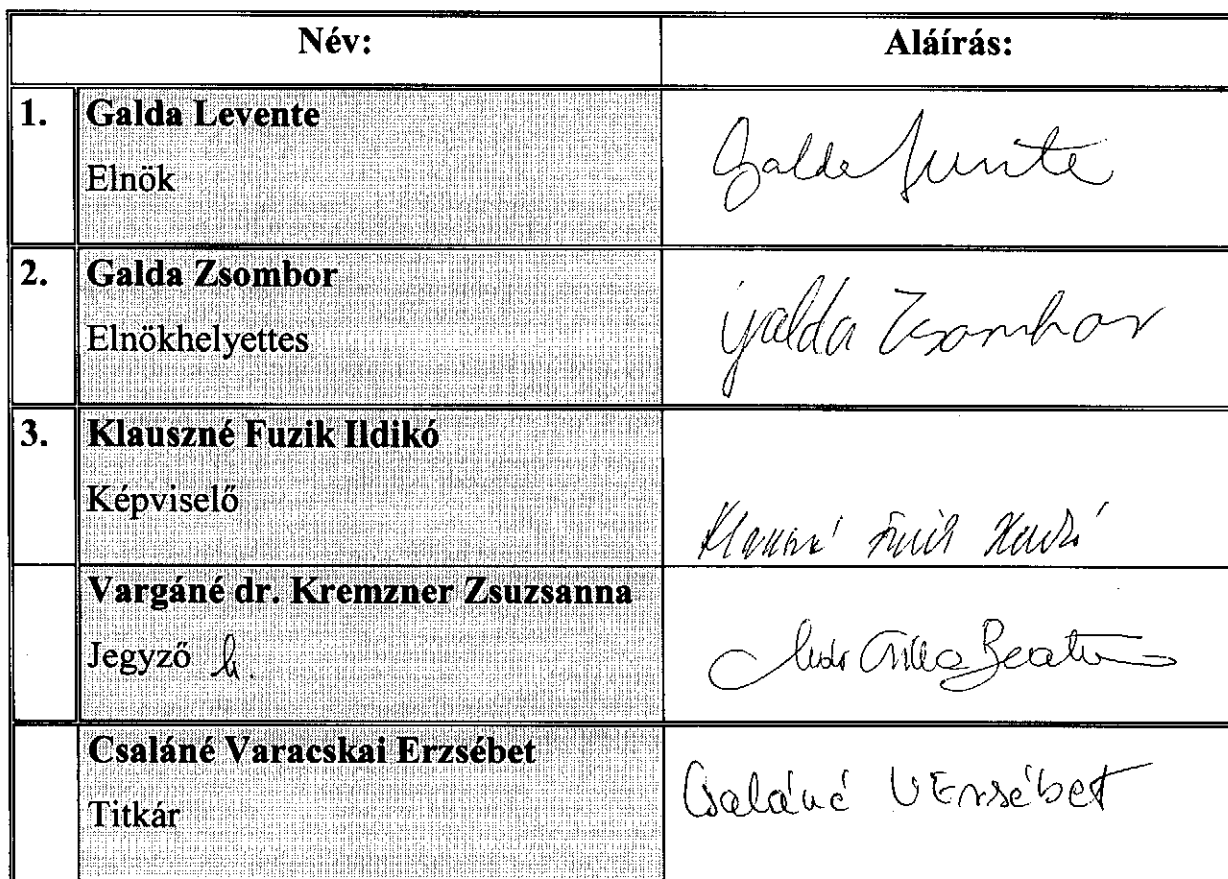 Név: Aláírás:
1. Galda Levente
Elnök
Galda Levente
2. Galda Zsombor
Elnökhelyettes
Galda Zsombor
3. Klauszné Fuzik Ildikó
Képviselő
Klauszné Fuzik Ildikó
Vargáné dr. Kremzner Zsuzsanna
Jegyző h.
Beatrix
Csaláné Varacskai Erzsébet
Titkár
Csaláné V Erzsébet